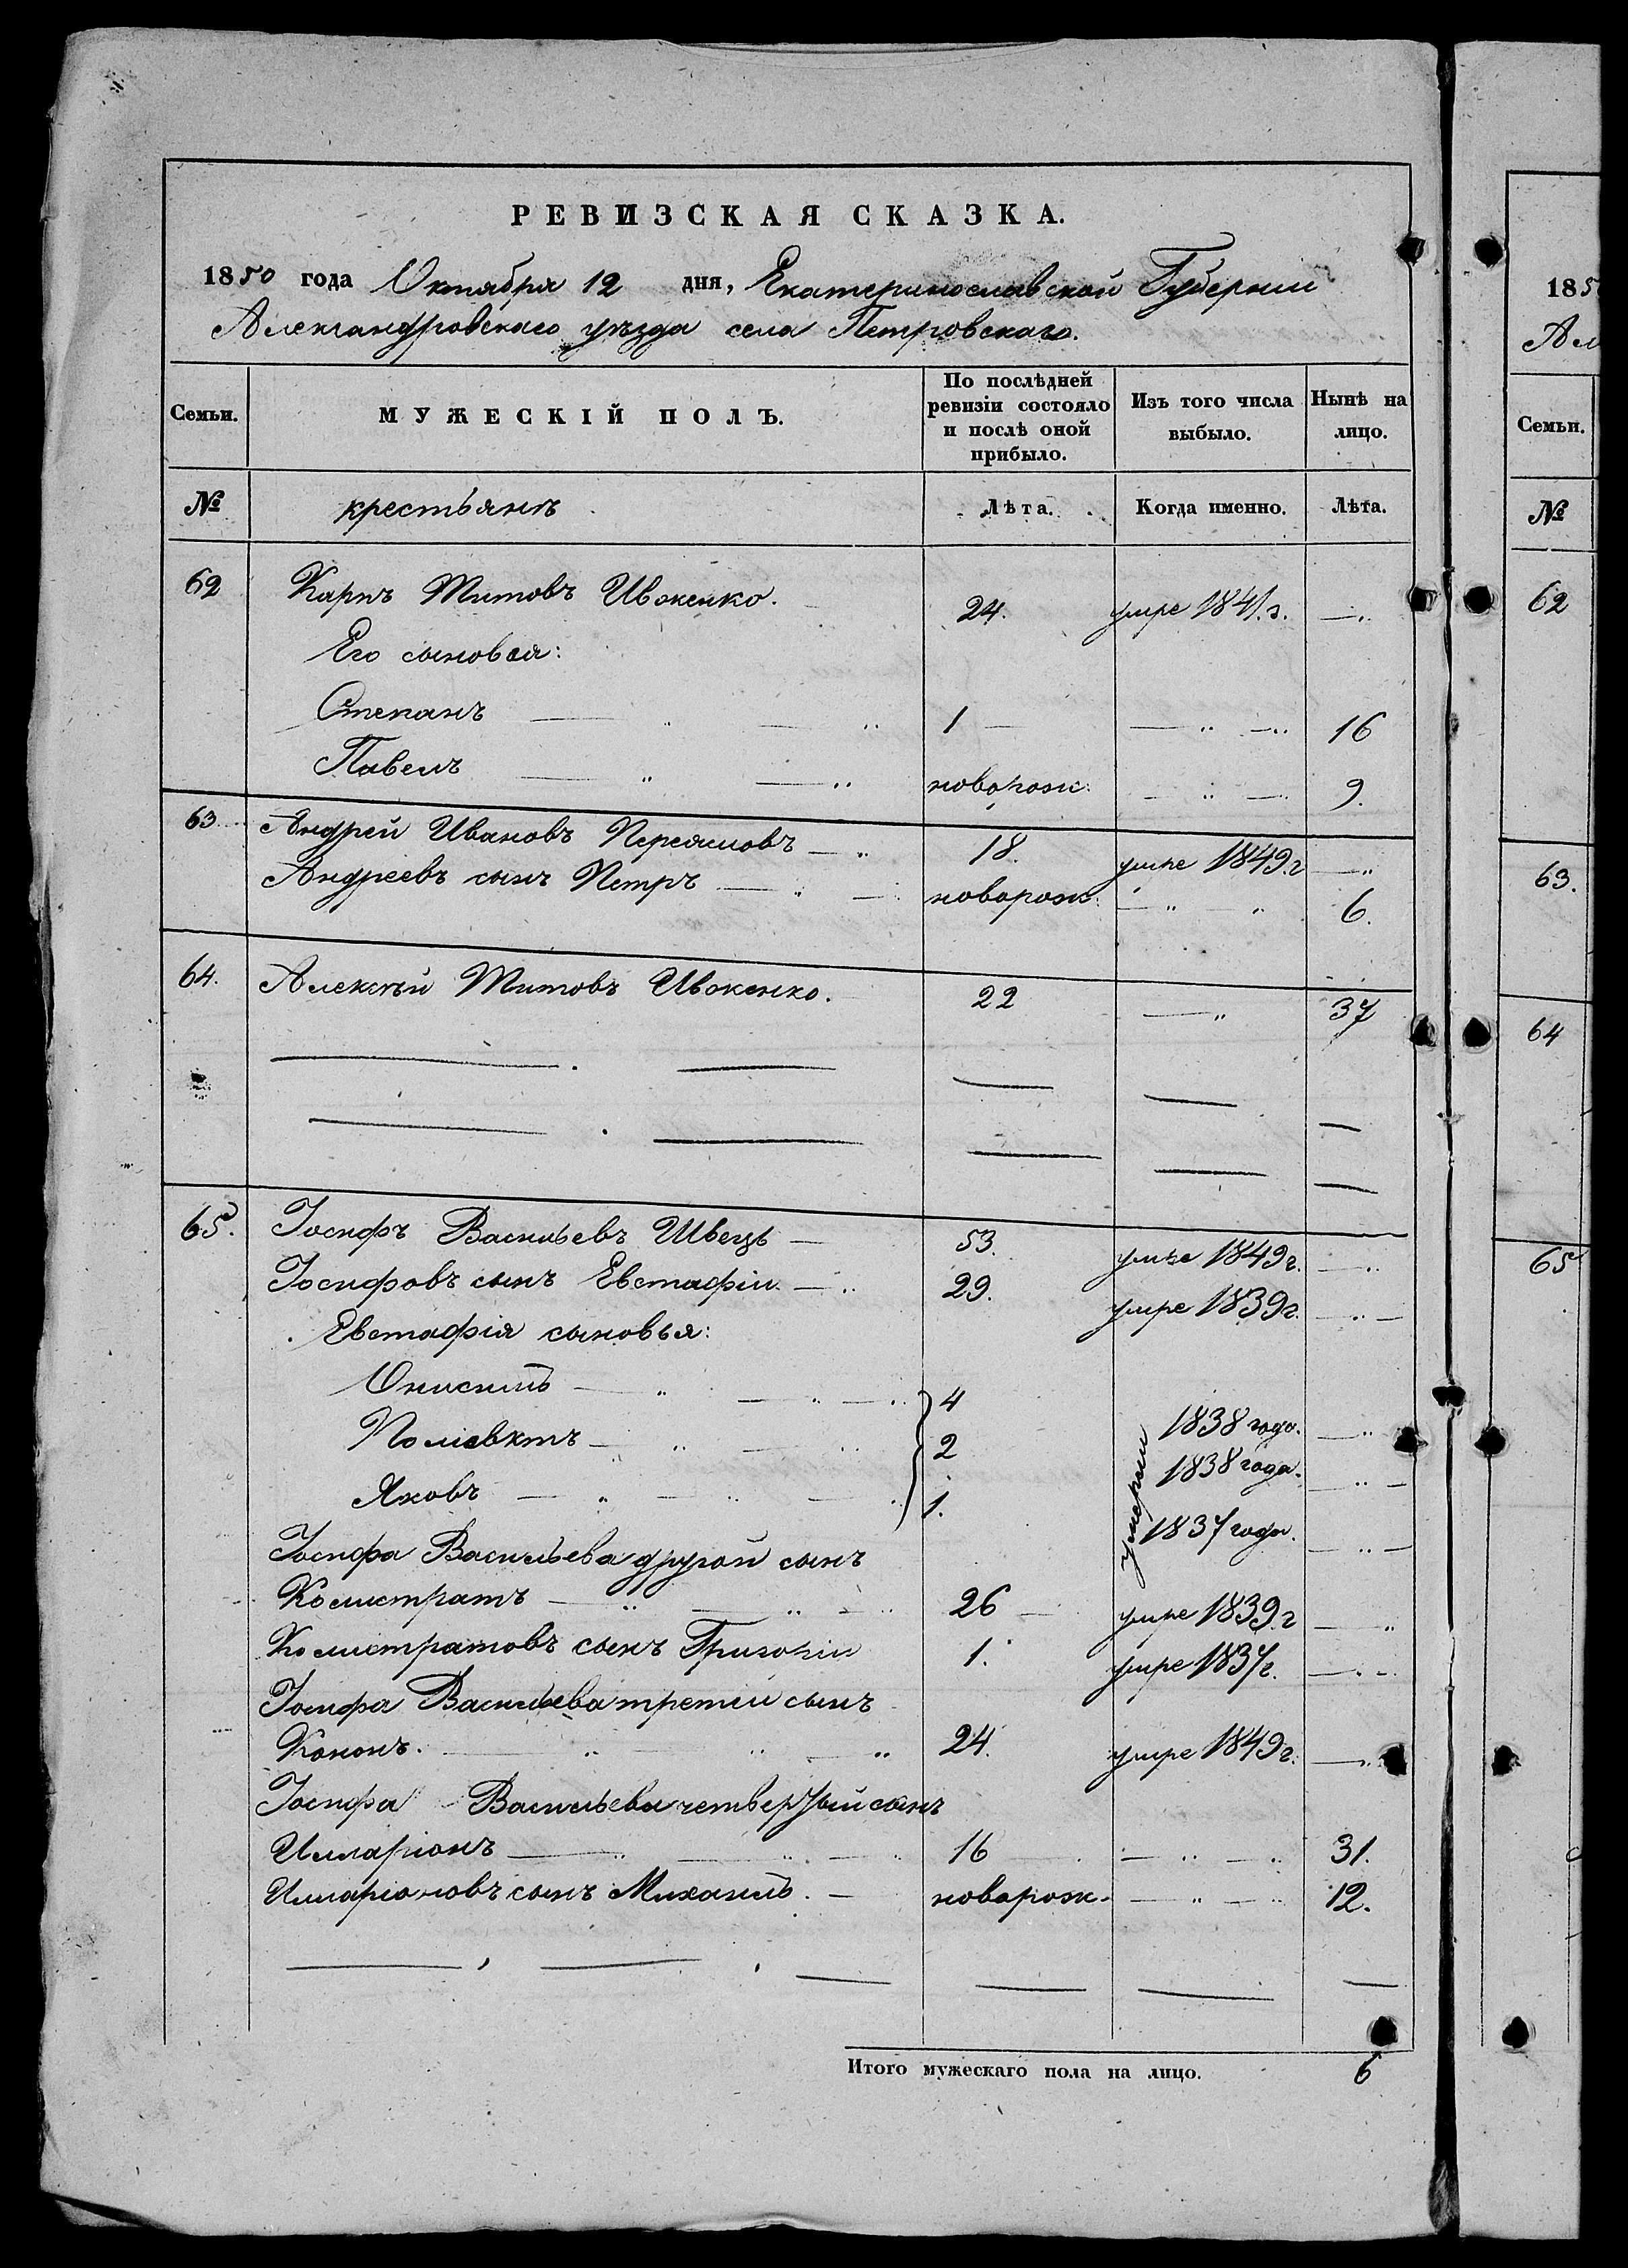 РЕВИЗСКАЯ СКАЗКА.
1850 года Октября 12 дня, Екатеринославской Губернии
Александровскаго уѣзда села Петровскаго.
Семьи. МУЖЕСКІЙ ПОЛЪ. По послѣдней ревизіи состояло и послѣ оной прибыло. Изъ того числа выбыло. Нынѣ на лицо.
№ крестьянъ Лѣта. Когда именно. Лѣта.
62 Карпъ Титовъ Ивженко. 24. умре 1841.г.
Его сыновья:
Степанъ 1 16
Павелъ новорож: 9.
63 Андрей Ивановъ 18. умре 1849.г
Андреевъ сынъ Петръ новорож: 6.
64. Алексѣй Титовъ Ивженко. 22 37
65. Іосифъ Васильевъ Швець 53. умре 1849г.
Іосифовъ сынъ Евстафій 29. умре 1839г.
Евстафія сыновья:
Онисимъ 4 умерли 1838 года.
Поліевктъ 2 1838 года.
Яковъ 1. 1837 года.
Іосифа Васильева другой сынъ
Колистратъ 26 умре 1839.г
Колистратовъ сынъ Григорій 1. умре 1837г.
Іосифа Васильева третій сынъ
Кононъ. 24. умре 1849г.
Іосифа Васильева четвертый сынъ
Илларіонъ 16 31.
Илларіоновъ сынъ Михаилъ. новорож. 12.
Итого мужескаго пола на лицо. 6
185
Ал
Семьи.
№
62
63.
64
65